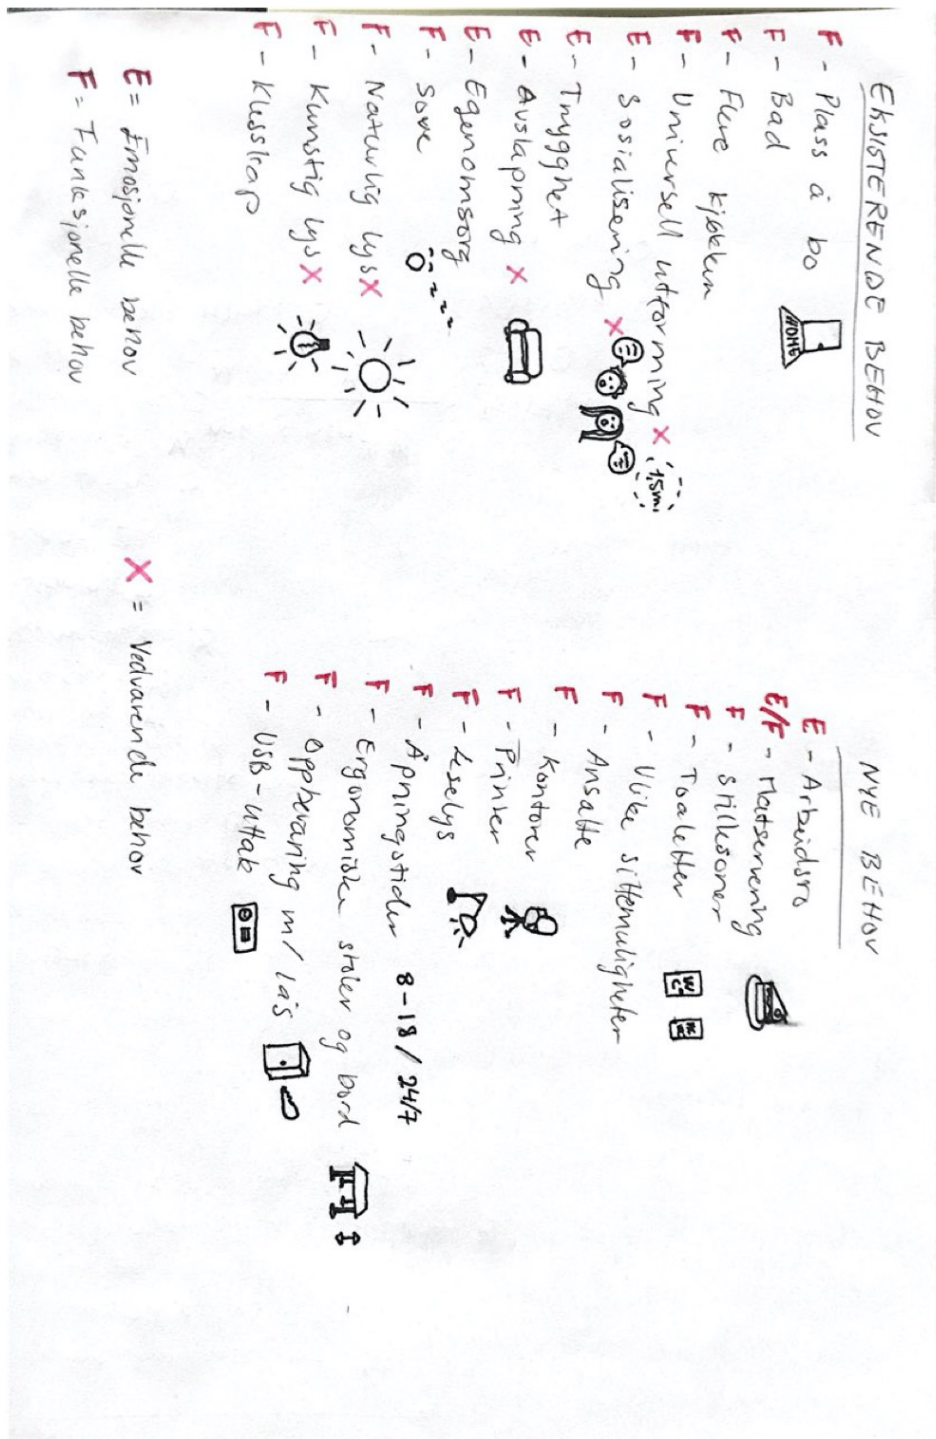 EKSISTERENDE BEHOV
F - Plass å bo
HOME
F - Bad
F - Flere kjøkken
F - Universell utforming X 1,5m
E - Sosialisering X
E - Trygghet
E - Avslapning X
E - Egenomsorg
F - Sove zzz
F - Naturlig lys X
F - Kunstig lys X
F - Klesskap
E = Emosjonelle behov
F = Funksjonelle behov
X = Vedvarende behov
NYE BEHOV
E - Arbeidsro
E/F - Matservering
F - Stillesoner
F - Toaletter WC
F - Ulike sittemuligheter
F - Ansatte
F - Kontorer
F - Printer
F - Leselys
F - Åpningstider 8-18 / 24/7
F - Ergonomiske stoler og bord
F - Oppbevaring m/ lås
F - USB-uttak